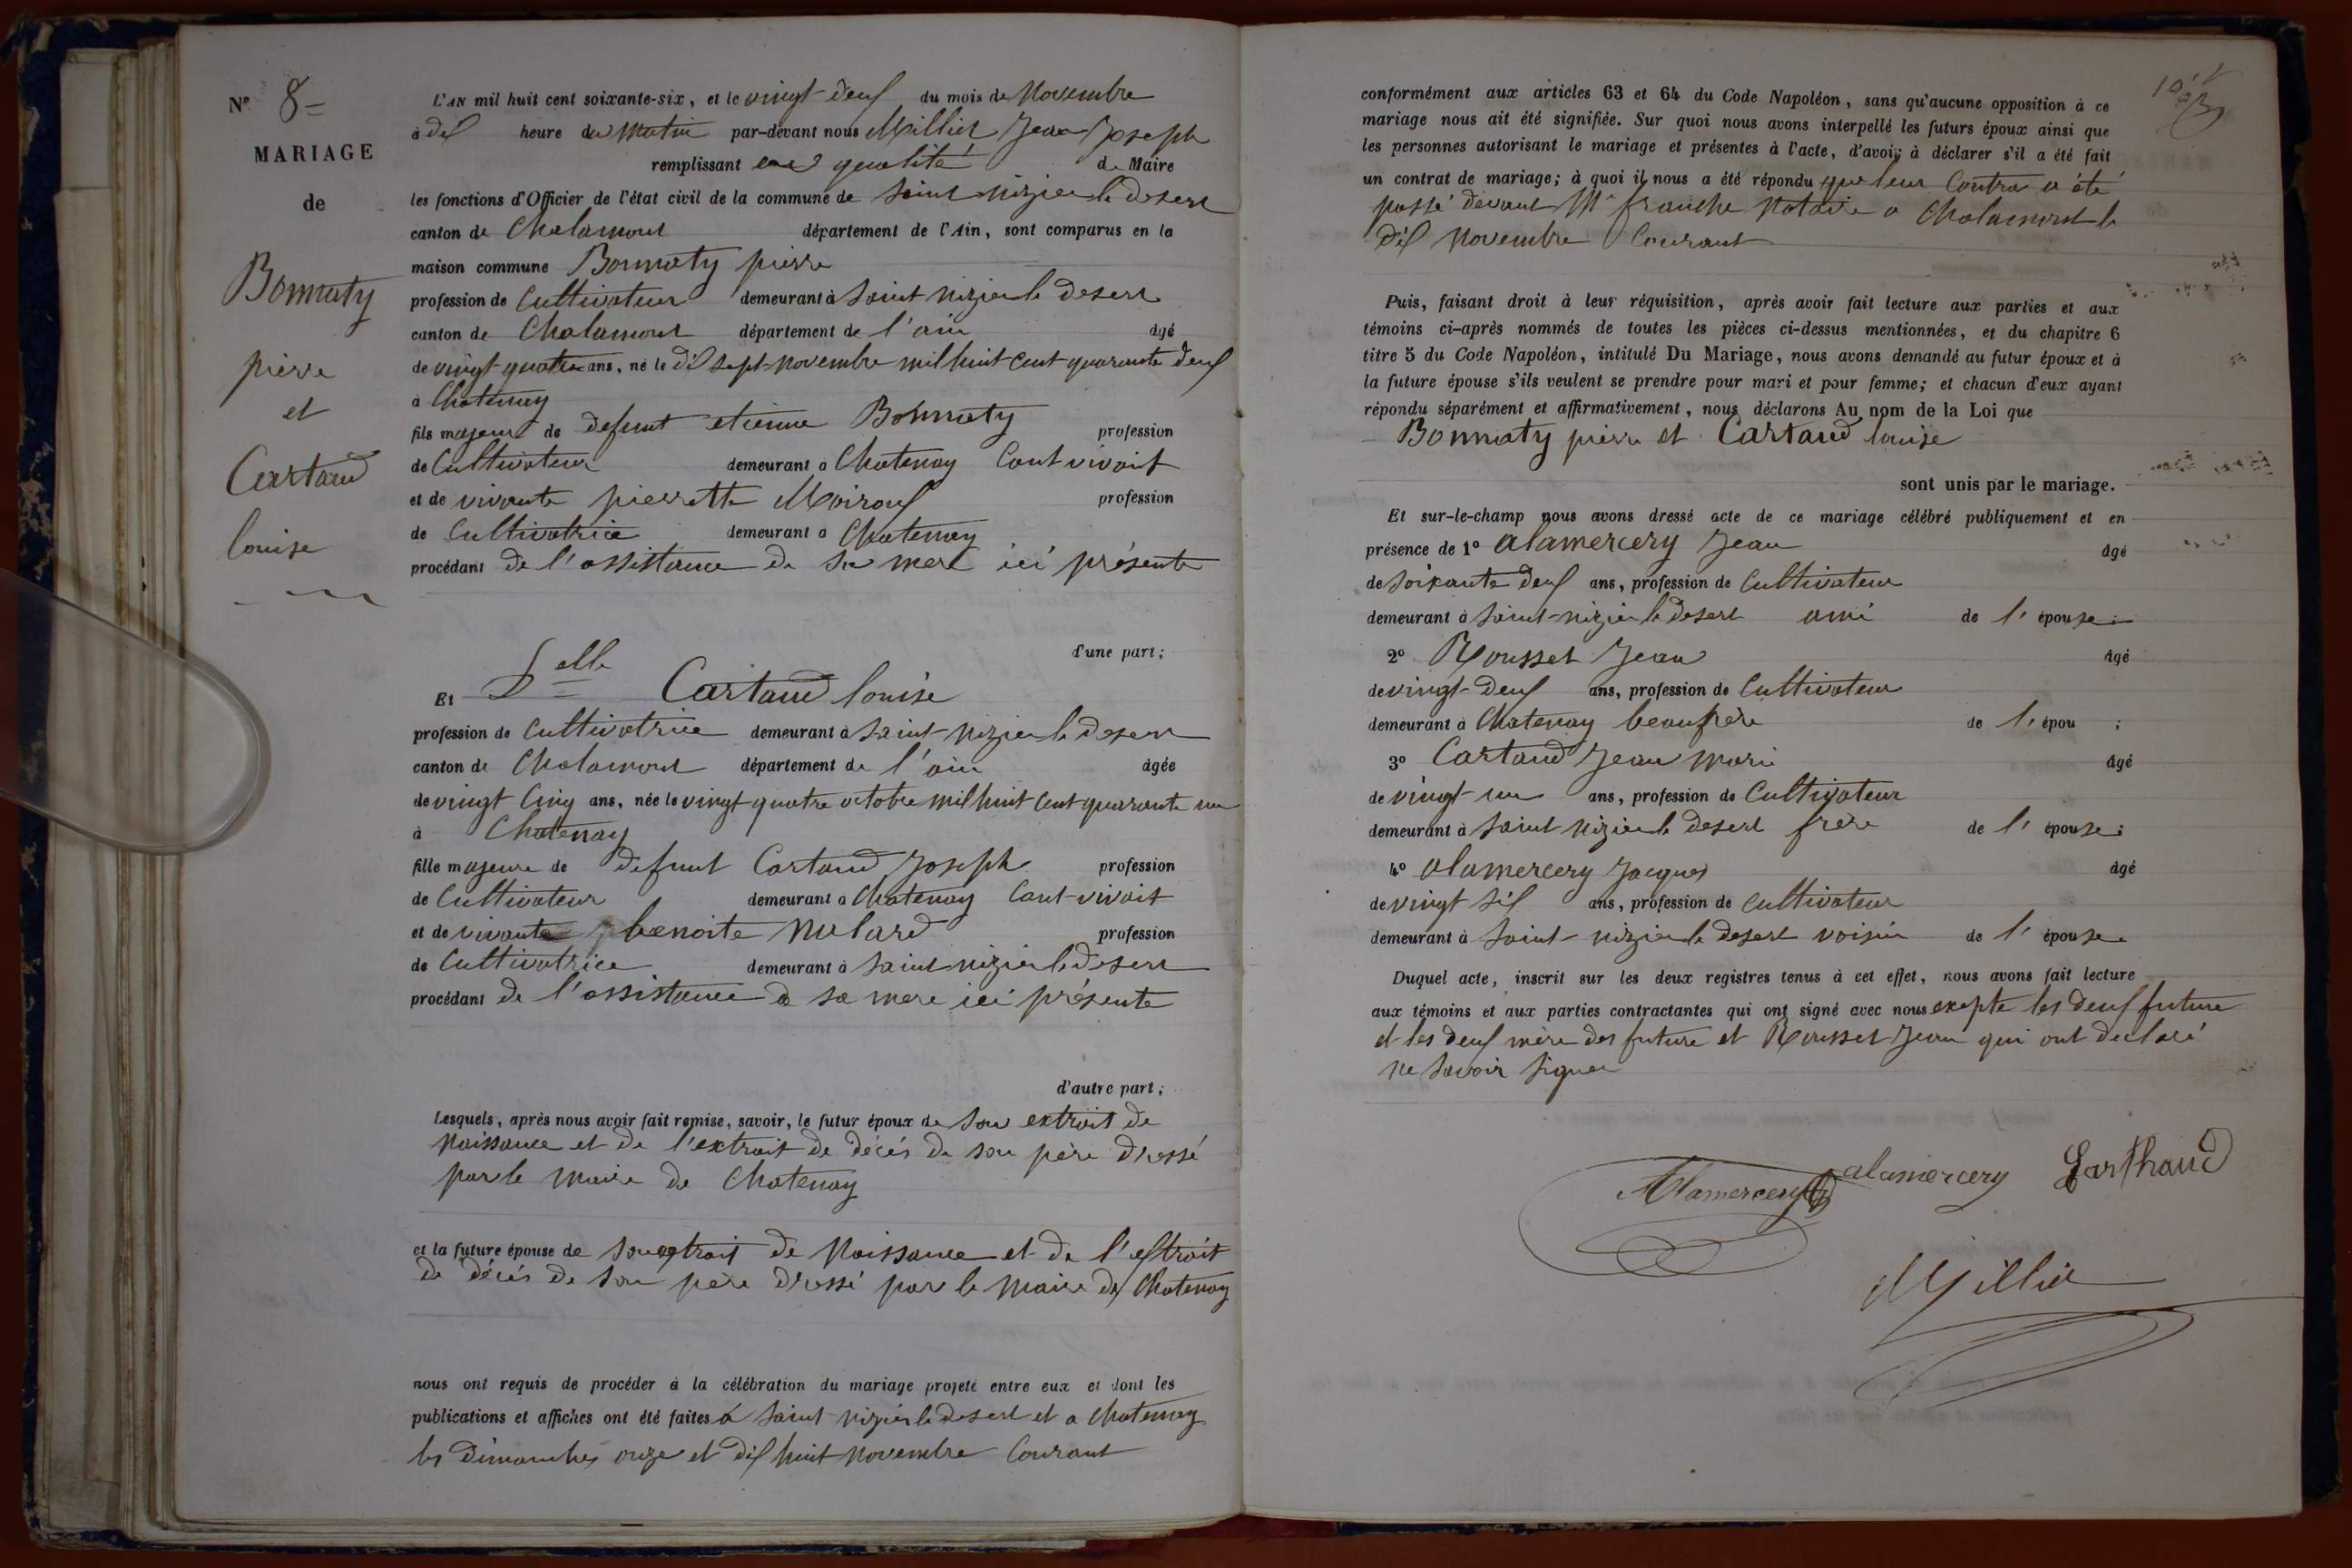 N° 8=
MARIAGE
de
Bonnaty
pierre
et
Cartaud
louise
L'AN mil huit cent soixante-six, et le vingt-deux du mois de Novembre
à dix heure du Matin par-devant nous Milliet Jean Joseph
remplissant en qualité de Maire
les fonctions d'Officier de l'état civil de la commune de Saint nizier le desert
canton de Chalamont département de l'Ain, sont comparus en la
maison commune Bonnaty pierre
profession de Cultivateur demeurant à Saint nizier le desert
canton de Chalamont département de l'ain âgé
de vingt quatre ans, né le dix sept novembre mil huit cent quarante deux
à Chatenay
fils majeur de defunt etienne Bonnaty profession
de Cultivateur demeurant à Chatenay tant vivait
et de vivante pierrette Moiroux profession
de Cultivatrice demeurant à Chatenay
procédant de l'assistance de sa mere ici présente
d'une part;
Et Delle Cartaud louise
profession de Cultivatrice demeurant à Saint nizier le desert
canton de Chalamont département de l'ain âgée
de vingt cinq ans, née le vingt quatre octobre mil huit cent quarante un
à Chatenay
fille majeure de defunt Cartaud Joseph profession
de Cultivateur demeurant à Chatenay tant-vivait
et de vivante benoite Mulard profession
de Cultivatrice demeurant à Saint nizier le desert
procédant de l'assistance de sa mere ici présente
d'autre part;
Lesquels, après nous avoir fait remise, savoir, le futur époux de son extrait de
naissance et de l'extrait de décés de son père dressé
par le maire de Chatenay
et la future épouse de son extrait de Naissance et de l'extrait
de décés de son père dressé par le maire de Chatenay
nous ont requis de procéder à la célébration du mariage projeté entre eux et dont les
publications et affiches ont été faites à Saint nizier le desert et a Chatenay
les dimanches onze et dix huit novembre Courant
conformément aux articles 63 et 64 du Code Napoléon, sans qu'aucune opposition à ce
mariage nous ait été signifiée. Sur quoi nous avons interpellé les futurs époux ainsi que
les personnes autorisant le mariage et présentes à l'acte, d'avoir à déclarer s'il a été fait
un contrat de mariage; à quoi il nous a été répondu que leur Contra a été
passé devant Me franche Notaire a Chalamont le
dix Novembre Courant
Puis, faisant droit à leur réquisition, après avoir fait lecture aux parties et aux
témoins ci-après nommés de toutes les pièces ci-dessus mentionnées, et du chapitre 6
titre 5 du Code Napoléon, intitulé Du Mariage, nous avons demandé au futur époux et à
la future épouse s'ils veulent se prendre pour mari et pour femme; et chacun d'eux ayant
répondu séparément et affirmativement, nous déclarons Au nom de la Loi que
Bonnaty pierre et Cartaud louise
sont unis par le mariage.
Et sur-le-champ nous avons dressé acte de ce mariage célébré publiquement et en
présence de 1° alamercery Jean âgé
de soixante deux ans, profession de Cultivateur
demeurant à Saint-nizier le desert ami de l'épouse;
2° Rousset Jean âgé
de vingt-deux ans, profession de Cultivateur
demeurant à Chatenay beaufrère de l'épou ;
3° Cartaud Jean marie âgé
de vingt un ans, profession de Cultivateur
demeurant à Saint nizier le desert frère de l'épouse;
4° alamercery Jacques âgé
de vingt six ans, profession de Cultivateur
demeurant à Saint-nizier le desert voisin de l'épouse.
Duquel acte, inscrit sur les deux registres tenus à cet effet, nous avons fait lecture
aux témoins et aux parties contractantes qui ont signé avec nous exepte les deux future
et les deux mère des future et Rousset Jean qui ont declaré
ne savoir signer
Alamercery alamercery Carthaud
Millie